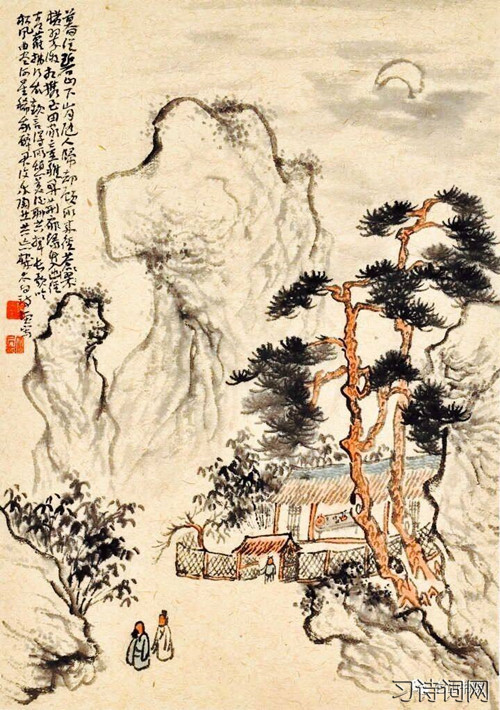 暮從碧山下山月隨人歸却顧所來徑蒼蒼
橫翠微相攜及田家童稚開荊扉綠竹入幽徑
青蘿拂行衣歡言得所憩美酒聊共揮長歌吟
松風曲盡河星稀我醉君復樂陶然共忘機太白詩
习诗词网